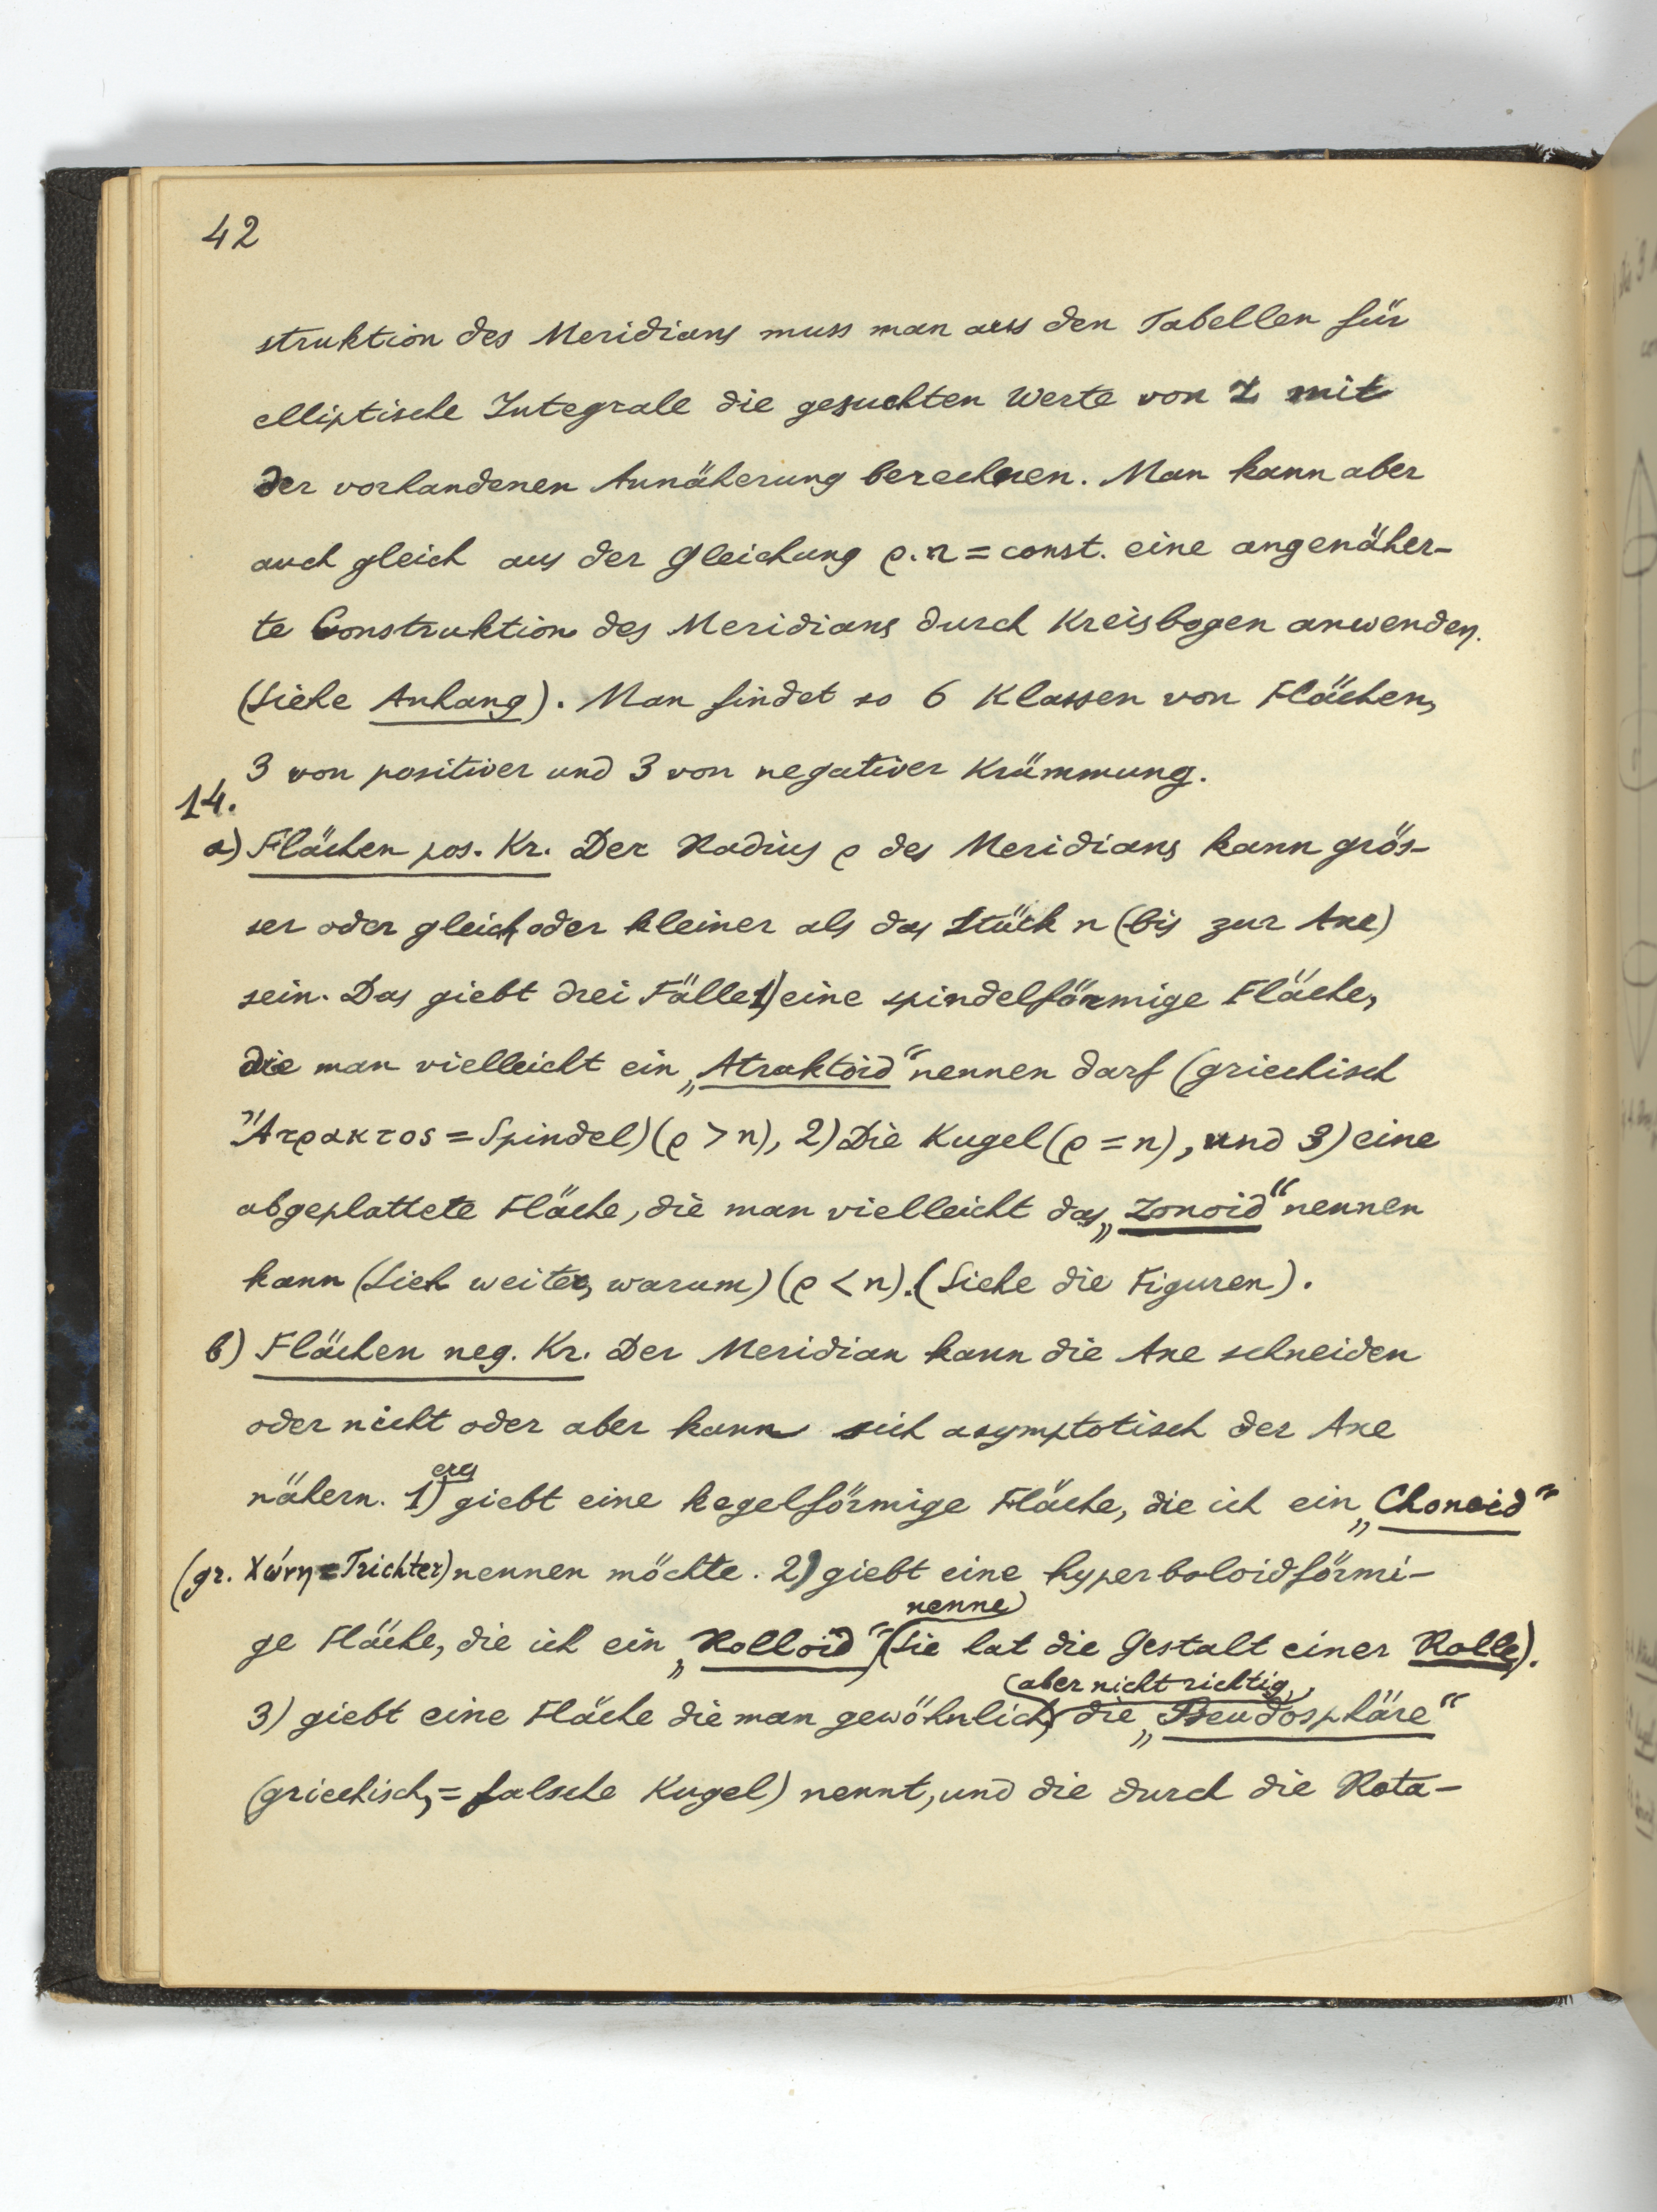 42
struktion des Meridians muss man aus den Tabellen für
elliptische Integrale die gesuchten Werte von z mit
der vorhandenen Annäherung berechnen. Man kann aber
auch gleich aus der Gleichung ρ.n = const. eine angenäher-
te Construktion des Meridians durch Kreisbogen anwenden.
(Siehe Anhang). Man findet so 6 Klassen von Flächen,
3 von positiver und 3 von negativer Krümmung.
14.
a) Flächen pos. Kr. Der Radius ρ des Meridians kann grös-
ser oder gleich oder kleiner als das Stück n (bis zur Axe)
sein. Das giebt drei Fälle 1) eine spindelförmige Fläche,
die man vielleicht ein „Atraktoid“ nennen darf (griechisch
Ἄτρακτος = Spindel) (ρ > n), 2) Die Kugel (ρ = n), und 3) eine
abgeplattete Fläche, die man vielleicht das „Zonoid“ nennen
kann (Sieh weiter, warum) (ρ < n). (Siehe die Figuren).
b) Flächen neg. Kr. Der Meridian kann die Axe schneiden
oder nicht oder aber kann sich asymptotisch der Axe
nähern. 1) es giebt eine kegelförmige Fläche, die ich ein „Chonoid“
(gr. Χώνη = Trichter) nennen möchte. 2) giebt eine hyperboloidförmi-
ge Fläche, die ich ein „Rolloid“ nenne (Sie hat die Gestalt einer Rolle).
3) giebt eine Fläche die man gewöhnlich, (aber nicht richtig), die „Pseudosphäre“
(griechisch, = falsche Kugel) nennt, und die durch die Rota-